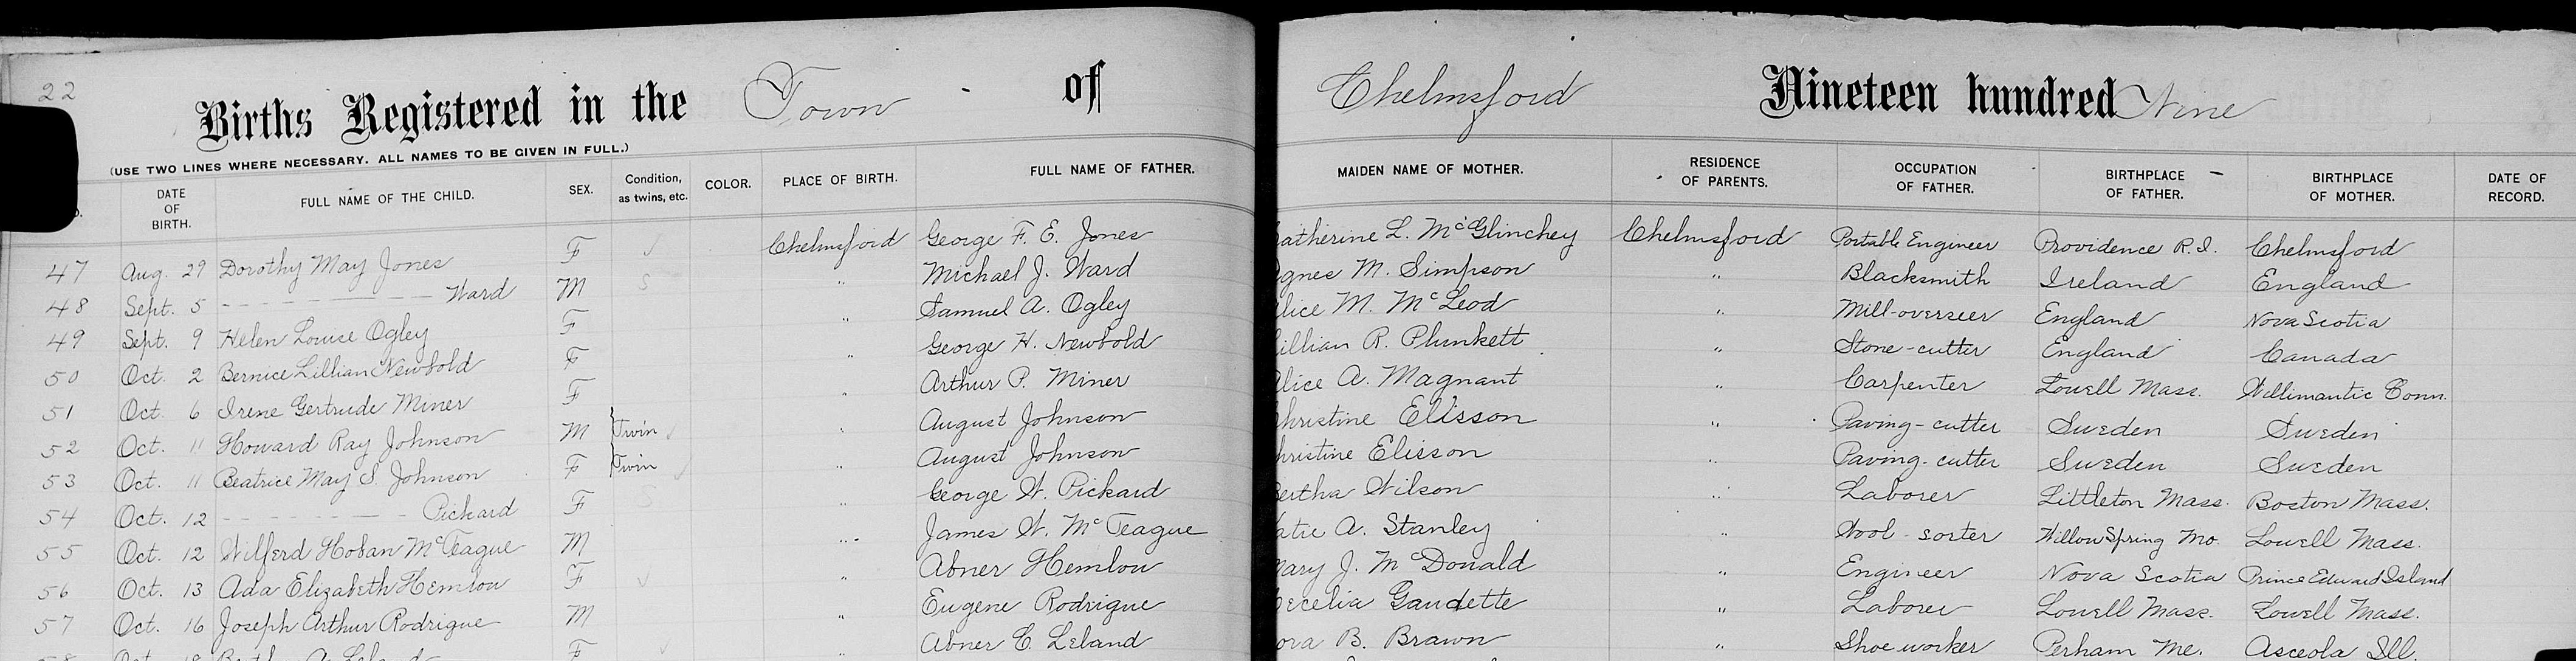 22
Births Registered in the Town of Chelmsford Nineteen hundred Nine
(USE TWO LINES WHERE NECESSARY. ALL NAMES TO BE GIVEN IN FULL.)
DATE OF BIRTH. FULL NAME OF THE CHILD. SEX. Condition, as twins, etc. COLOR. PLACE OF BIRTH. FULL NAME OF FATHER. MAIDEN NAME OF MOTHER. RESIDENCE OF PARENTS. OCCUPATION OF FATHER. BIRTHPLACE OF FATHER. BIRTHPLACE OF MOTHER. DATE OF RECORD.
47 Aug. 29 Dorothy May Jones F ✓ Chelmsford George F. E. Jones atherine L. McGlinchey Chelmsford Portable Engineer Providence R.I. Chelmsford
48 Sept. 5 - - - - - - - Ward M S " Michael J. Ward gnes M. Simpson " Blacksmith Ireland England
49 Sept. 9 Helen Louise Ogley F " Samuel A. Ogley lice M. McLeod " Mill-overseer England Nova Scotia
50 Oct. 2 Bernice Lillian Newbold F " George H. Newbold illian R. Plunkett " Stone-cutter England Canada
51 Oct. 6 Irene Gertrude Miner F " Arthur P. Miner lice A. Magnant " Carpenter Lowell Mass. Willimantic Conn.
52 Oct. 11 Howard Ray Johnson M Twin ✓ " August Johnson hristine Elisson " Paving-cutter Sweden Sweden
53 Oct. 11 Beatrice May S. Johnson F Twin ✓ " August Johnson hristine Elisson " Paving-cutter Sweden Sweden
54 Oct. 12 - - - - - - - Pickard F S " George W. Pickard ertha Wilson " Laborer Littleton Mass. Boston Mass.
55 Oct. 12 Wilferd Hoban McTeague M " James W. McTeague atie A. Stanley " Wool-sorter Willow Spring Mo. Lowell Mass.
56 Oct. 13 Ada Elizabeth Hemlow F ✓ " Abner Hemlow ary J. McDonald " Engineer Nova Scotia Prince Edward Island
57 Oct. 16 Joseph Arthur Rodrigue M " Eugene Rodrigue ecelia Gaudette " Laborer Lowell Mass. Lowell Mass.
58 Oct. 18 F ✓ " Abner C. Leland ora B. Brawn " Shoe worker Perham Me. Asceola Ill.